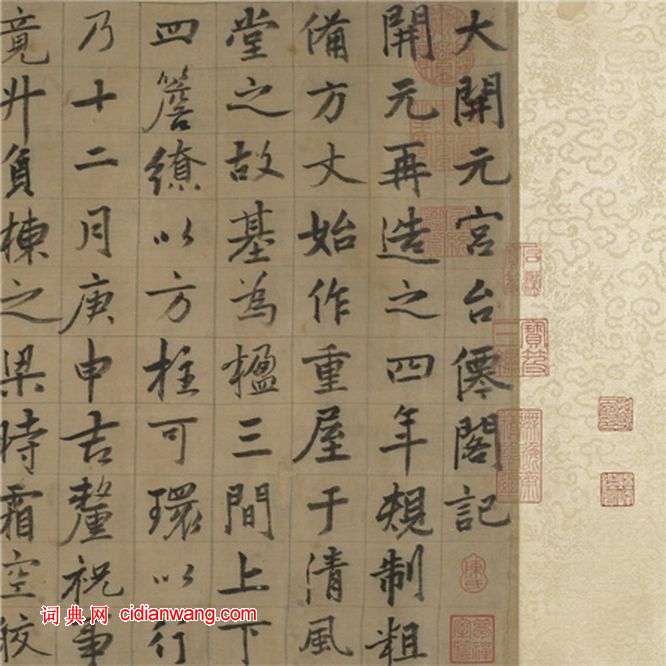 大開元宮台僊閣記
開元再造之四年規制粗
備方丈始作重屋于清風
堂之故基為楹三間上下
四簷繚以方柱可環以行
乃十二月庚申吉釐祝事
竟升負棟之梁時霜空皎
词典网 cidianwang.com